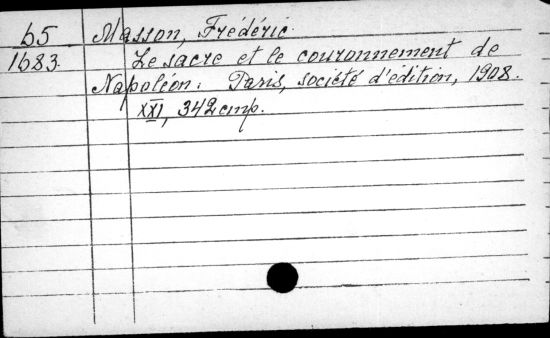 65 Masson, Frédéric.
1683. Le sacre et le couronnement de
Napoléon. Paris, société d'édition, 1908.
XXI, 342 cmp.